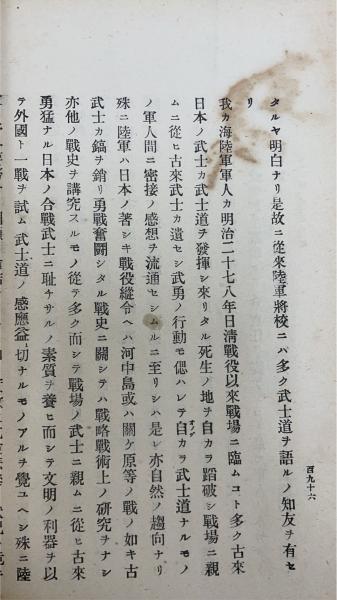 タルヤ明白ナリ是故ニ従來陸軍將校ニハ多ク武士道ヲ語ルノ知友ヲ有セ
リ
我カ海陸軍軍人カ明治二十七八年日清戰役以來戰場ニ臨ムコト多ク古來
日本ノ武士カ武士道ヲ發揮シ來リタル死生ノ地ヲ自カラ蹈破シ戰場ニ親
ムニ從ヒ古來武士カ遺セシ武勇ノ行動モ偲ハレテ自カラ武士道ナルモノ
ノ軍人間ニ密接ノ感想ヲ流通セシムルニ至リシハ是レ亦自然ノ趨向ナリ
殊ニ陸軍ハ日本ノ著シキ戰役縱令ヘハ河中島或ハ關ケ原等ノ戰ノ如キ古
武士カ鎬ヲ銷リ勇戰奮鬪シタル戰史ニ關シテハ戰略戰術上ノ研究ヲナシ
亦他ノ戰史ヲ講究スルモノ從テ多ク而シテ戰場ノ武士ニ親ムニ從ヒ古來
勇猛ナル日本ノ合戰武士ニ耻チサルノ素質ヲ養ヒ而シテ文明ノ利器ヲ以
テ外國ト一戰ヲ試ム武士道ノ感應益切ナルモノアルヲ覺ユヘシ殊ニ陸
百九十六